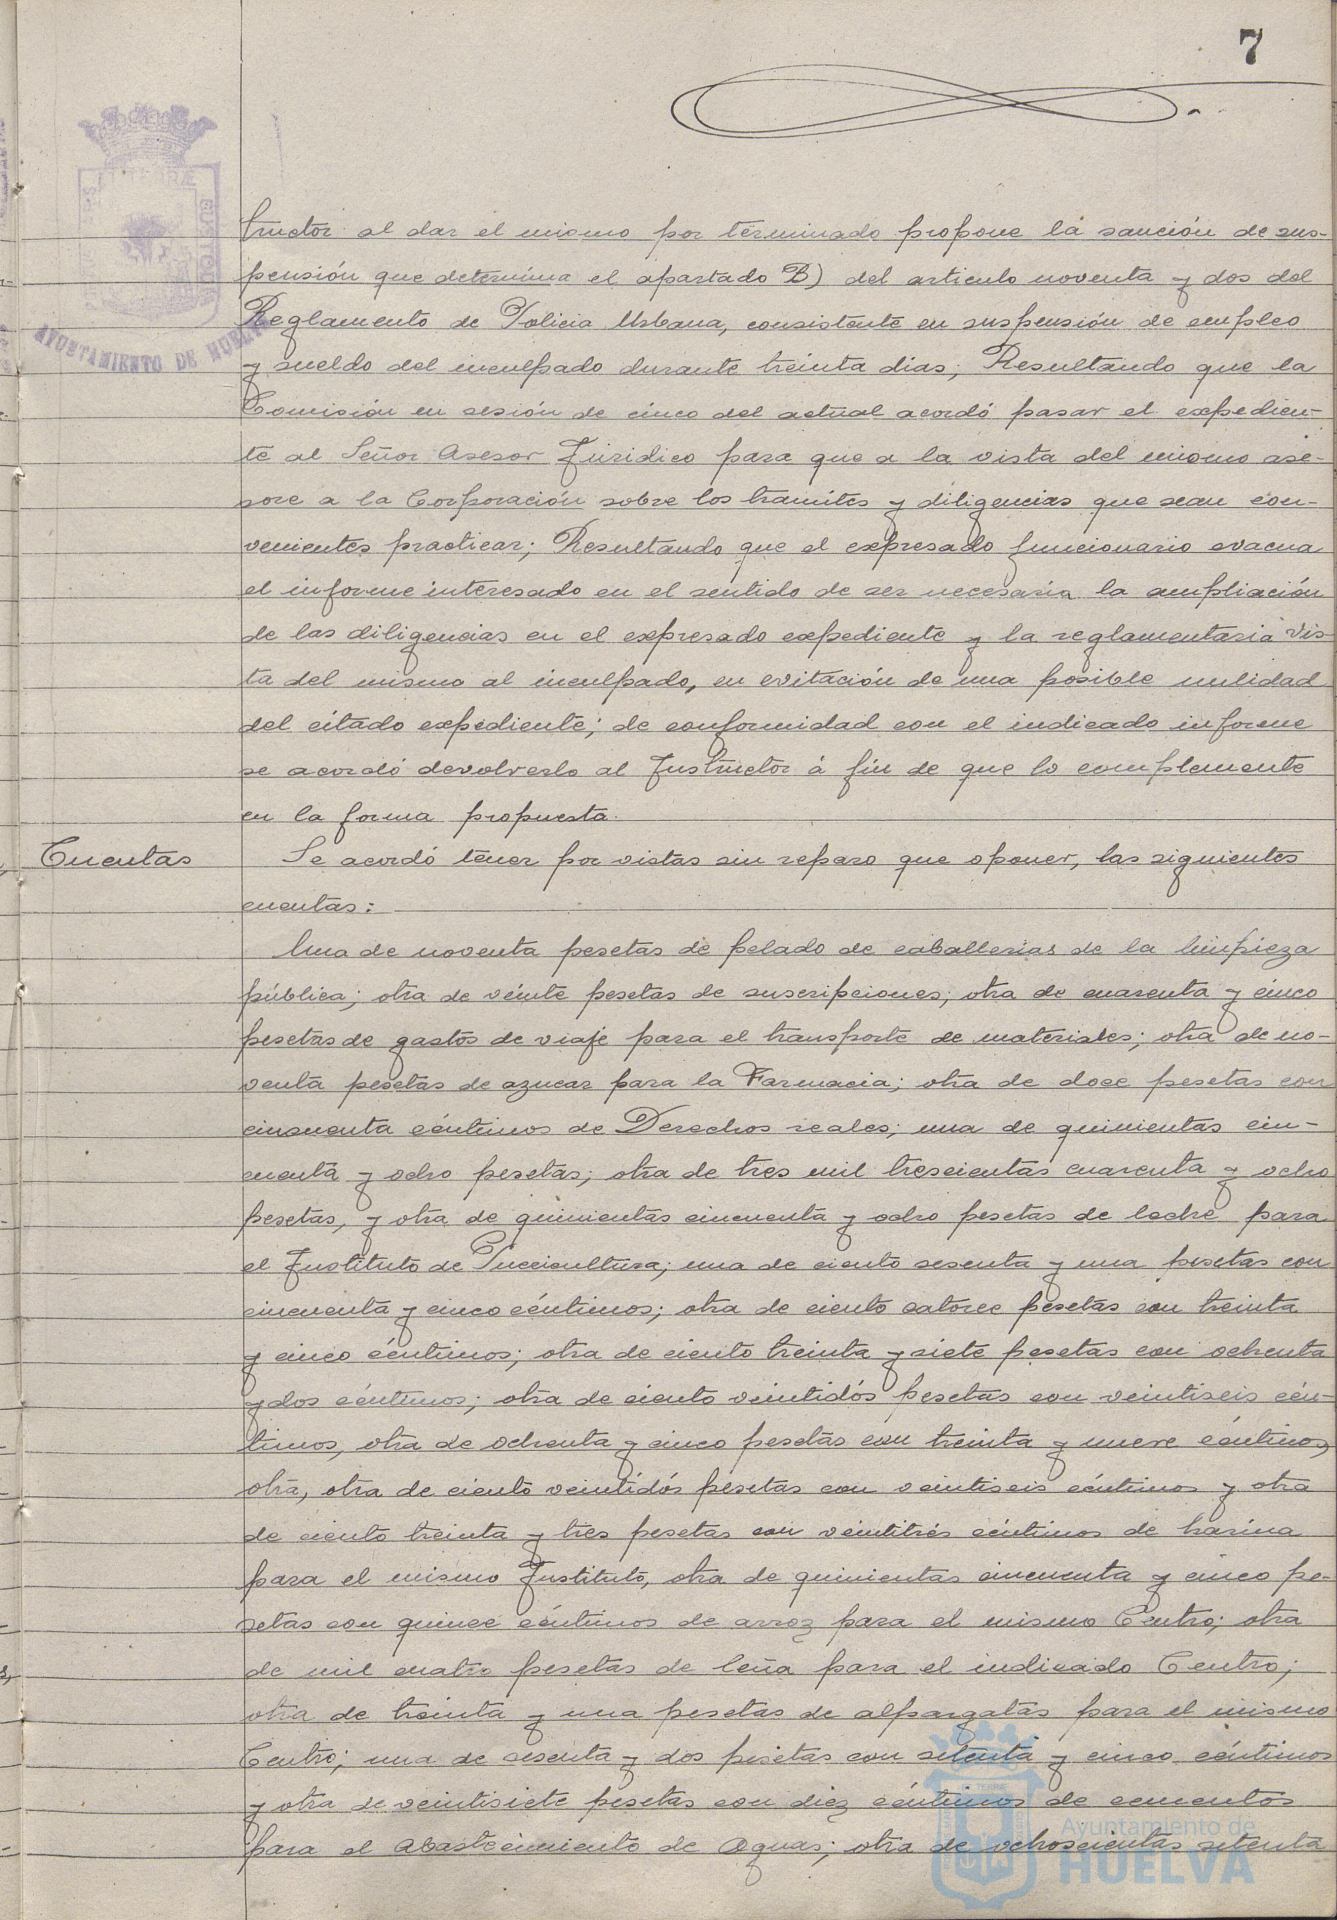 7
TERRÆ
CUSTODIA
AYUNTAMIENTO DE HUELVA
tructor al dar el mismo por terminado propone la sanción de sus-
pensión que determina el apartado B) del articulo noventa y dos del
Reglamento de Policia Urbana, consistente en suspensión de empleo
y sueldo del inculpado durante treinta dias; Resultando que la
Comisión en sesión de cinco del actual acordó pasar el expedien-
te al Señor Asesor Juridico para que a la vista del mismo ase-
sore a la Corporación sobre los tramites y diligencias que sean con-
venientes practicar; Resultando que el expresado funcionario evacua
el informe interesado en el sentido de ser necesaria la ampliación
de las diligencias en el expresado expediente y la reglamentaria vis-
ta del mismo al inculpado, en evitación de una posible nulidad
del citado expediente; de conformidad con el indicado informe
se acordó devolverlo al Instructor á fin de que lo complemente
en la forma propuesta.
Cuentas
Se acordó tener por vistas sin reparo que oponer, las siguientes
cuentas:
Una de noventa pesetas de pelado de caballerias de la limpieza
pública; otra de veinte pesetas de suscripciones; otra de cuarenta y cinco
pesetas de gastos de viaje para el transporte de materiales; otra de no-
venta pesetas de azucar para la Farmacia; otra de doce pesetas con
cincuenta céntimos de Derechos reales; una de quinientas cin-
cuenta y ocho pesetas; otra de tres mil trescientas cuarenta y ocho
pesetas, y otra de quinientas cincuenta y ocho pesetas de leche para
el Instituto de Puericultura; una de ciento sesenta y una pesetas con
cincuenta y cinco céntimos; otra de ciento catorce pesetas con treinta
y cinco céntimos; otra de ciento treinta y siete pesetas con ochenta
y dos céntimos; otra de ciento veintidós pesetas con veintiseis cén-
timos, otra de ochenta y cinco pesetas con treinta y nueve céntimos,
otra, otra de ciento veintidós pesetas con veintiseis céntimos y otra
de ciento treinta y tres pesetas con veintitrés céntimos de harina
para el mismo Instituto, otra de quinientas cincuenta y cinco pe-
setas con quince céntimos de arroz para el mismo Centro; otra
de mil cuatro pesetas de leña para el indicado Centro;
otra de treinta y una pesetas de alpargatas para el mismo
Centro; una de sesenta y dos pesetas con setenta y cinco céntimos
y otra de veintisiete pesetas con diez céntimos de cementos
para el Abastecimiento de Aguas; otra de ochocientas setenta
Ayuntamiento de
HUELVA